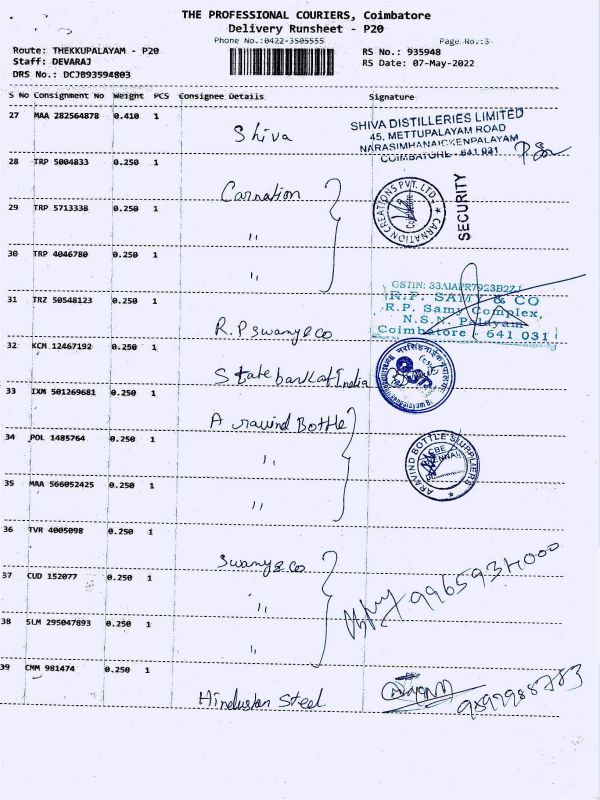 THE PROFESSIONAL COURIERS, Coimbatore
Delivery Runsheet - P20
Phone No.:0422-3505555
Page No.:3
Route: THEKKUPALAYAM - P20
Staff: DEVARAJ
DRS No.: DCJB93594803
RS No.: 935948
RS Date: 07-May-2022
S No Consignment No Weight PCS Consignee Details Signature
27 MAA 282564878 0.410 1
Shiva
SHIVA DISTILLERIES LIMITED
45, METTUPALAYAM ROAD
NARASIMHANAICKENPALAYAM
COIMBATORE - 641 031
28 TRP 5004833 0.250 1
Carnation
CARNATION CREATIONS PVT. LTD.
SECURITY
29 TRP 5713338 0.250 1
"
30 TRP 4046780 0.250 1
"
31 TRZ 50548123 0.250 1
R.P swamy & co
GSTIN: 33AIAPR7923B2ZJ
R.P. SAMY & CO
R.P. Samy Complex,
N.S.N. Palayam
Coimbatore - 641 031
32 KCM 12467192 0.250 1
State bank of India
33 IXM 501269681 0.250 1
Aravind Bottle
34 POL 1485764 0.250 1
"
ARAVIND BOTTLE SUPPLIERS
35 MAA 566052425 0.250 1
"
36 TVR 4005098 0.250 1
Swamy & co
37 CUD 152077 0.250 1
"
38 SLM 295047893 0.250 1
"
39 CMM 981474 0.250 1
Hindustan Steel